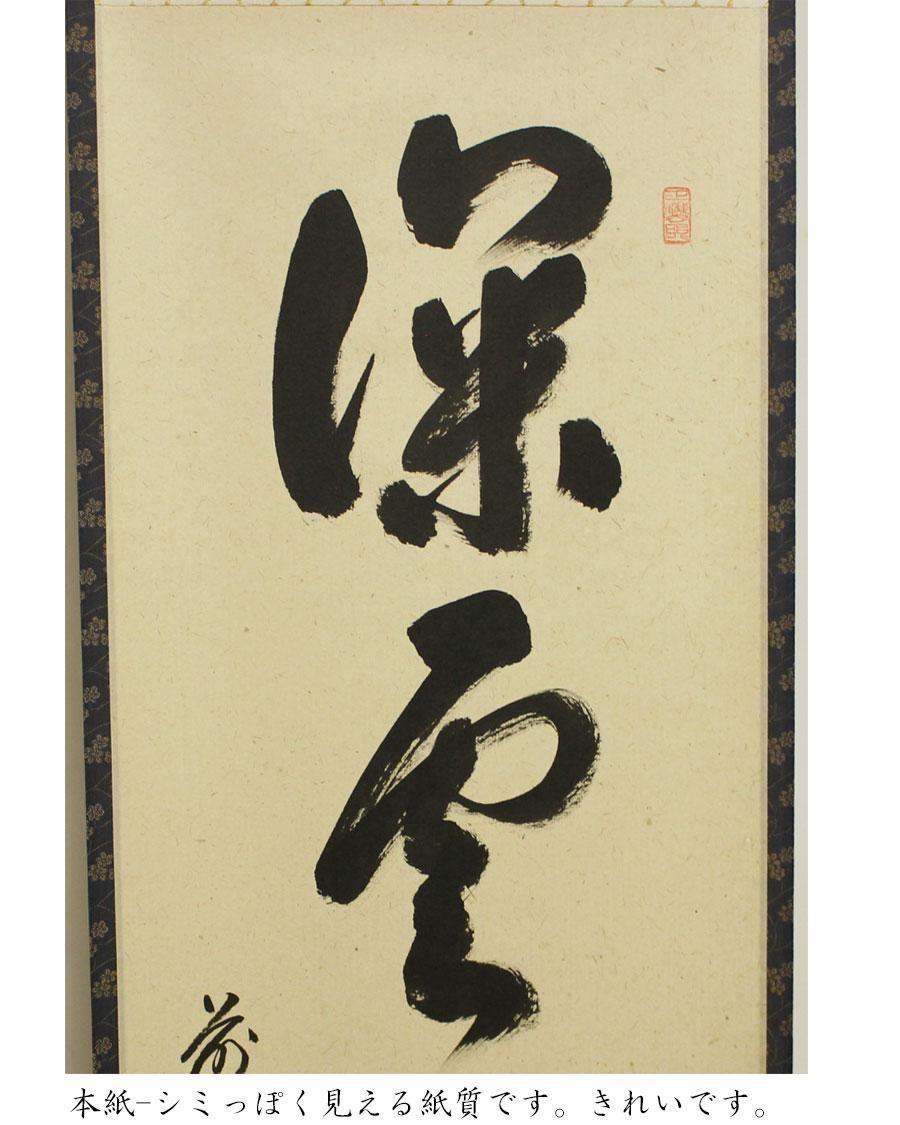 深雲
前
本紙-シミっぽく見える紙質です。きれいです。